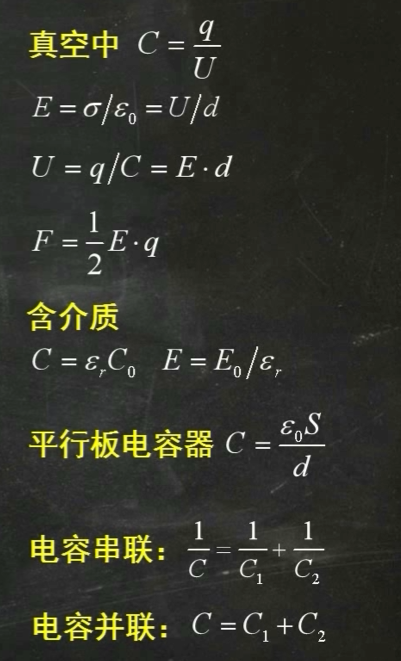 真空中 C = q/U
E = σ/ε₀ = U/d
U = q/C = E·d
F = 1/2 E·q
含介质
C = εᵣC₀ E = E₀/εᵣ
平行板电容器 C = ε₀S/d
电容串联： 1/C = 1/C₁ + 1/C₂
电容并联： C = C₁ + C₂